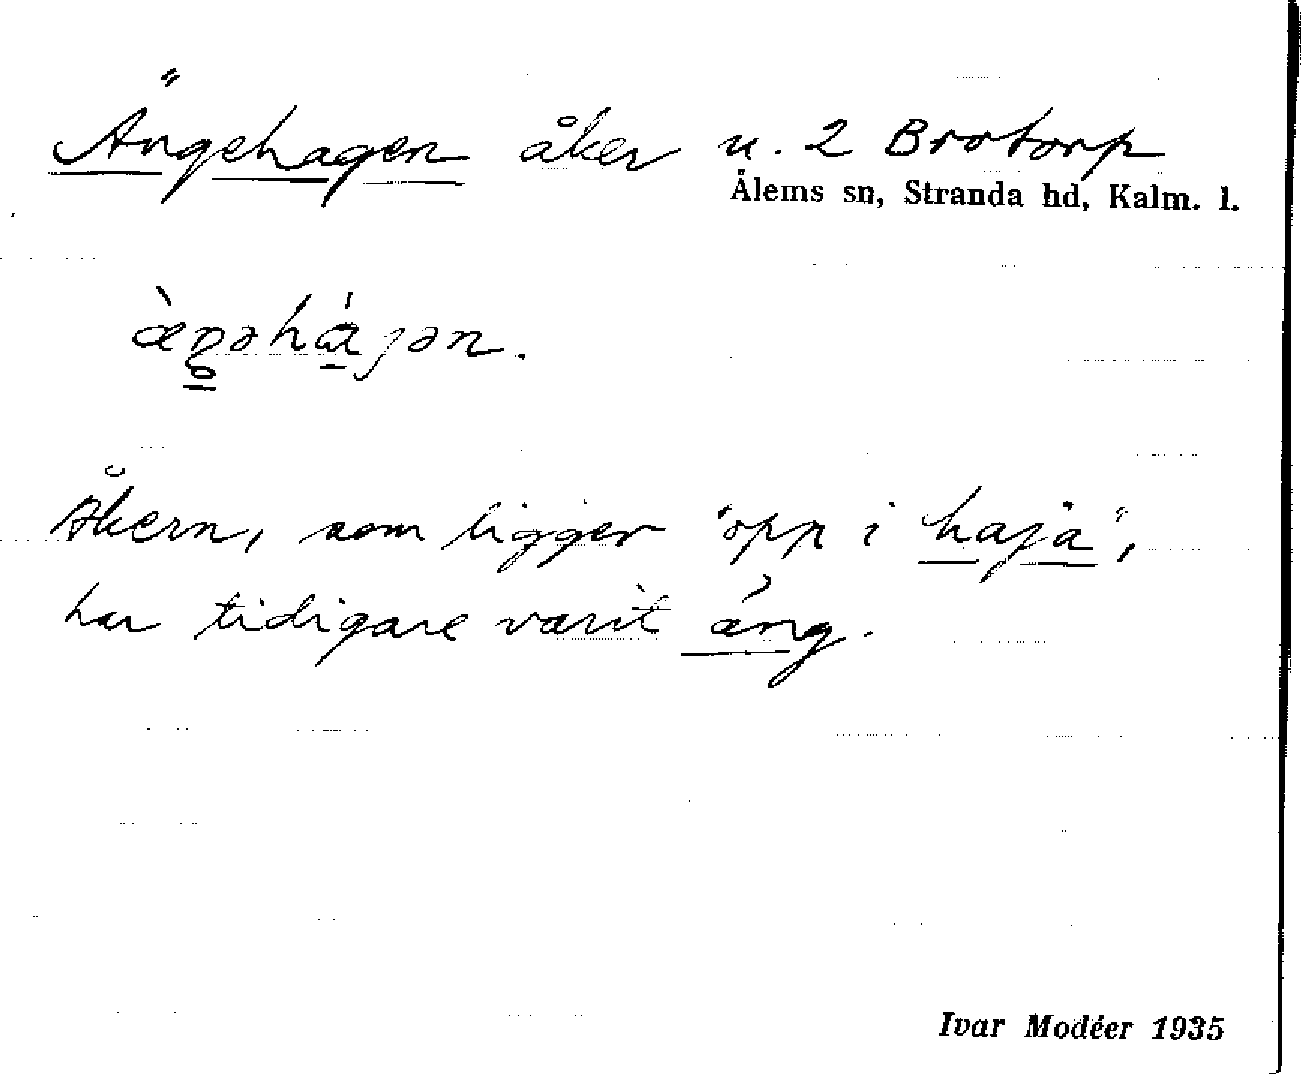 Ängehagen åker u. 2 Brotorp
Ålems sn, Stranda hd, Kalm. l.
Åkern, som ligger "opp i haja",
har tidigare varit äng.
Ivar Modéer 1935